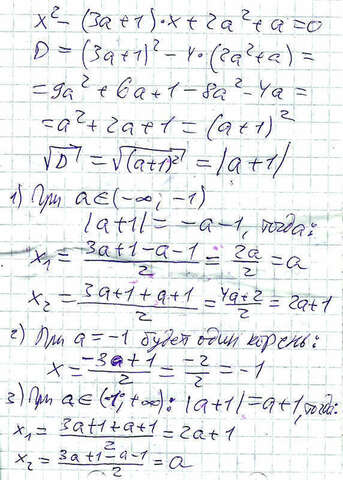 x² - (3a+1)·x + 2a² + a = 0
D = (3a+1)² - 4·(2a²+a) =
= 9a² + 6a + 1 - 8a² - 4a =
= a² + 2a + 1 = (a+1)²
√D = √(a+1)² = |a+1|
1) При a∈(-∞; -1)
|a+1| = -a-1, тогда:
x₁ = (3a+1-a-1)/2 = 2a/2 = a
x₂ = (3a+1+a+1)/2 = (4a+2)/2 = 2a+1
2) При a = -1 будет один корень:
x = (-3+1)/2 = -2/2 = -1
3) При a∈(-1; +∞): |a+1| = a+1, тогда:
x₁ = (3a+1+a+1)/2 = 2a+1
x₂ = (3a+1-a-1)/2 = a